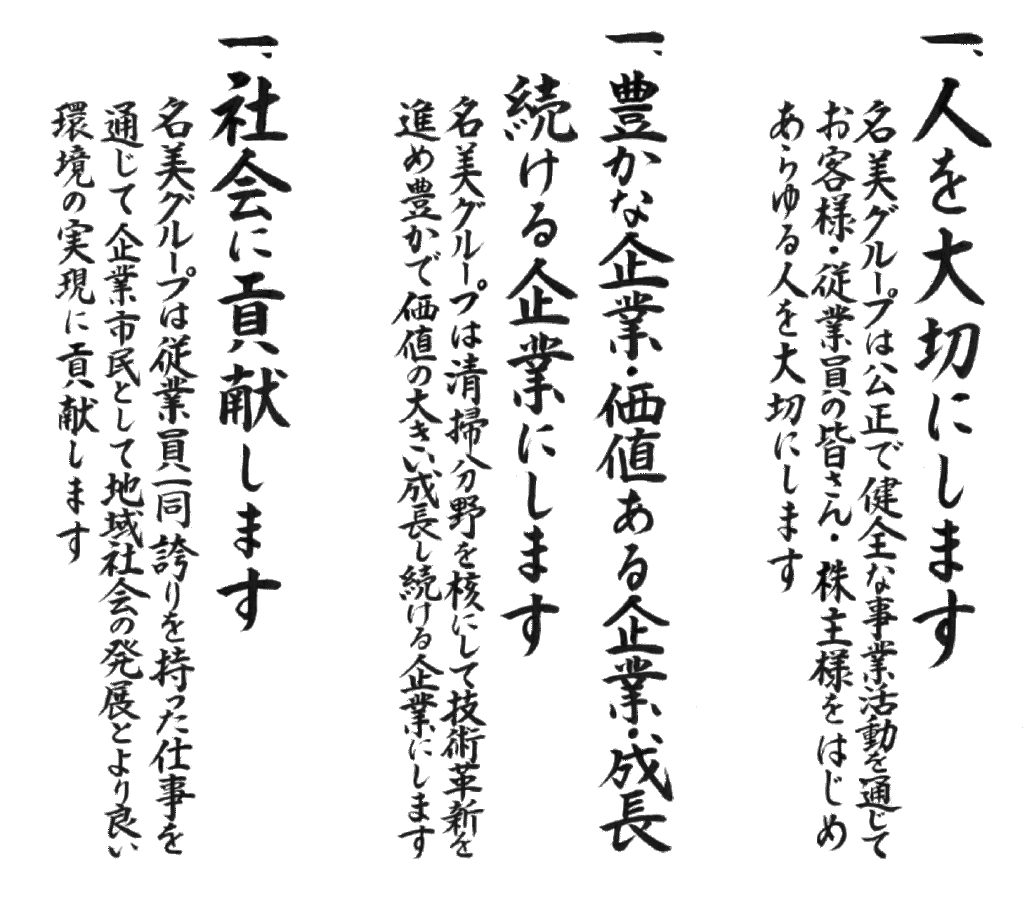 一、人を大切にします
名美グループは公正で健全な事業活動を通じて
お客様・従業員の皆さん・株主様をはじめ
あらゆる人を大切にします
一、豊かな企業・価値ある企業・成長
続ける企業にします
名美グループは清掃分野を核にして技術革新を
進め豊かで価値の大きい成長し続ける企業にします
一、社会に貢献します
名美グループは従業員一同誇りを持った仕事を
通じて企業市民として地域社会の発展とより良い
環境の実現に貢献します